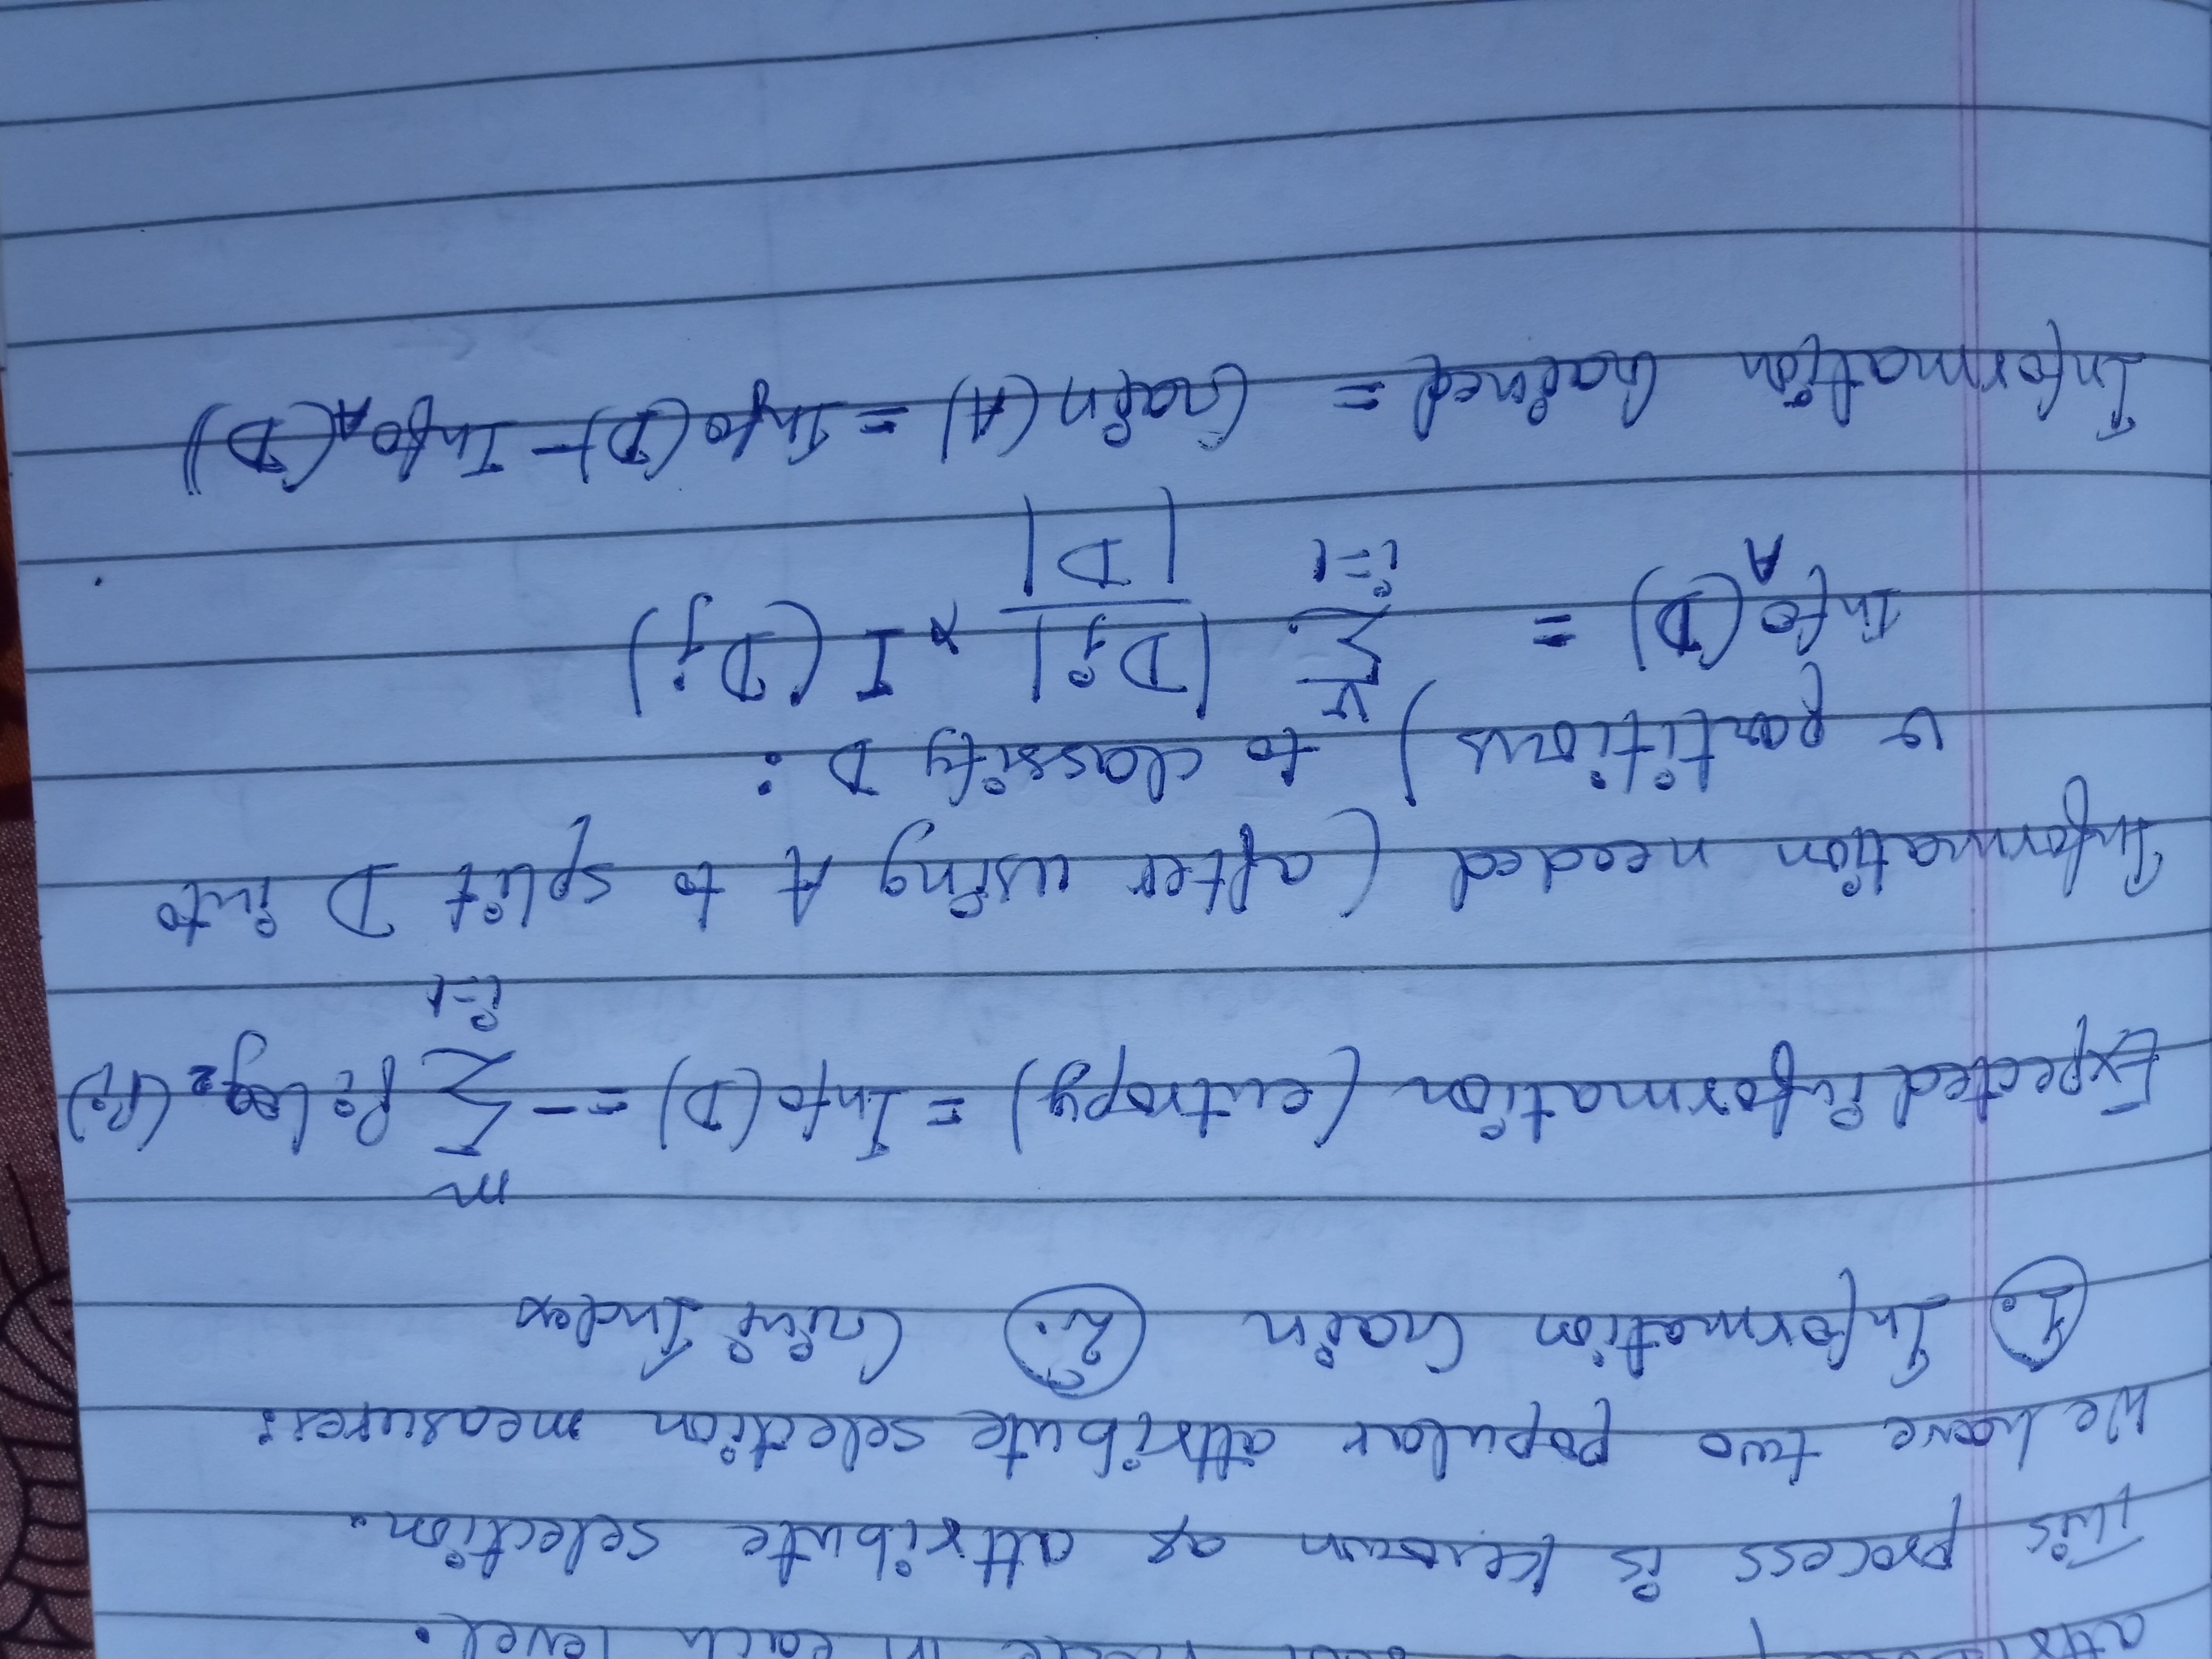 in each level.
This process is known as attribute selection.
We have two popular attribute selection measures:
1. Information Gain 2. Gini Index
Expected information (entropy) = Info(D) = - ∑_{i=1}^{m} p_i log_2 (p_i)
Information needed (after using A to split D into
v partitions) to classify D:
Info_A(D) = ∑_{i=1}^{v} |Dj| / |D| × I(Dj)
Information Gained = Gain(A) = Info(D) - Info_A(D)